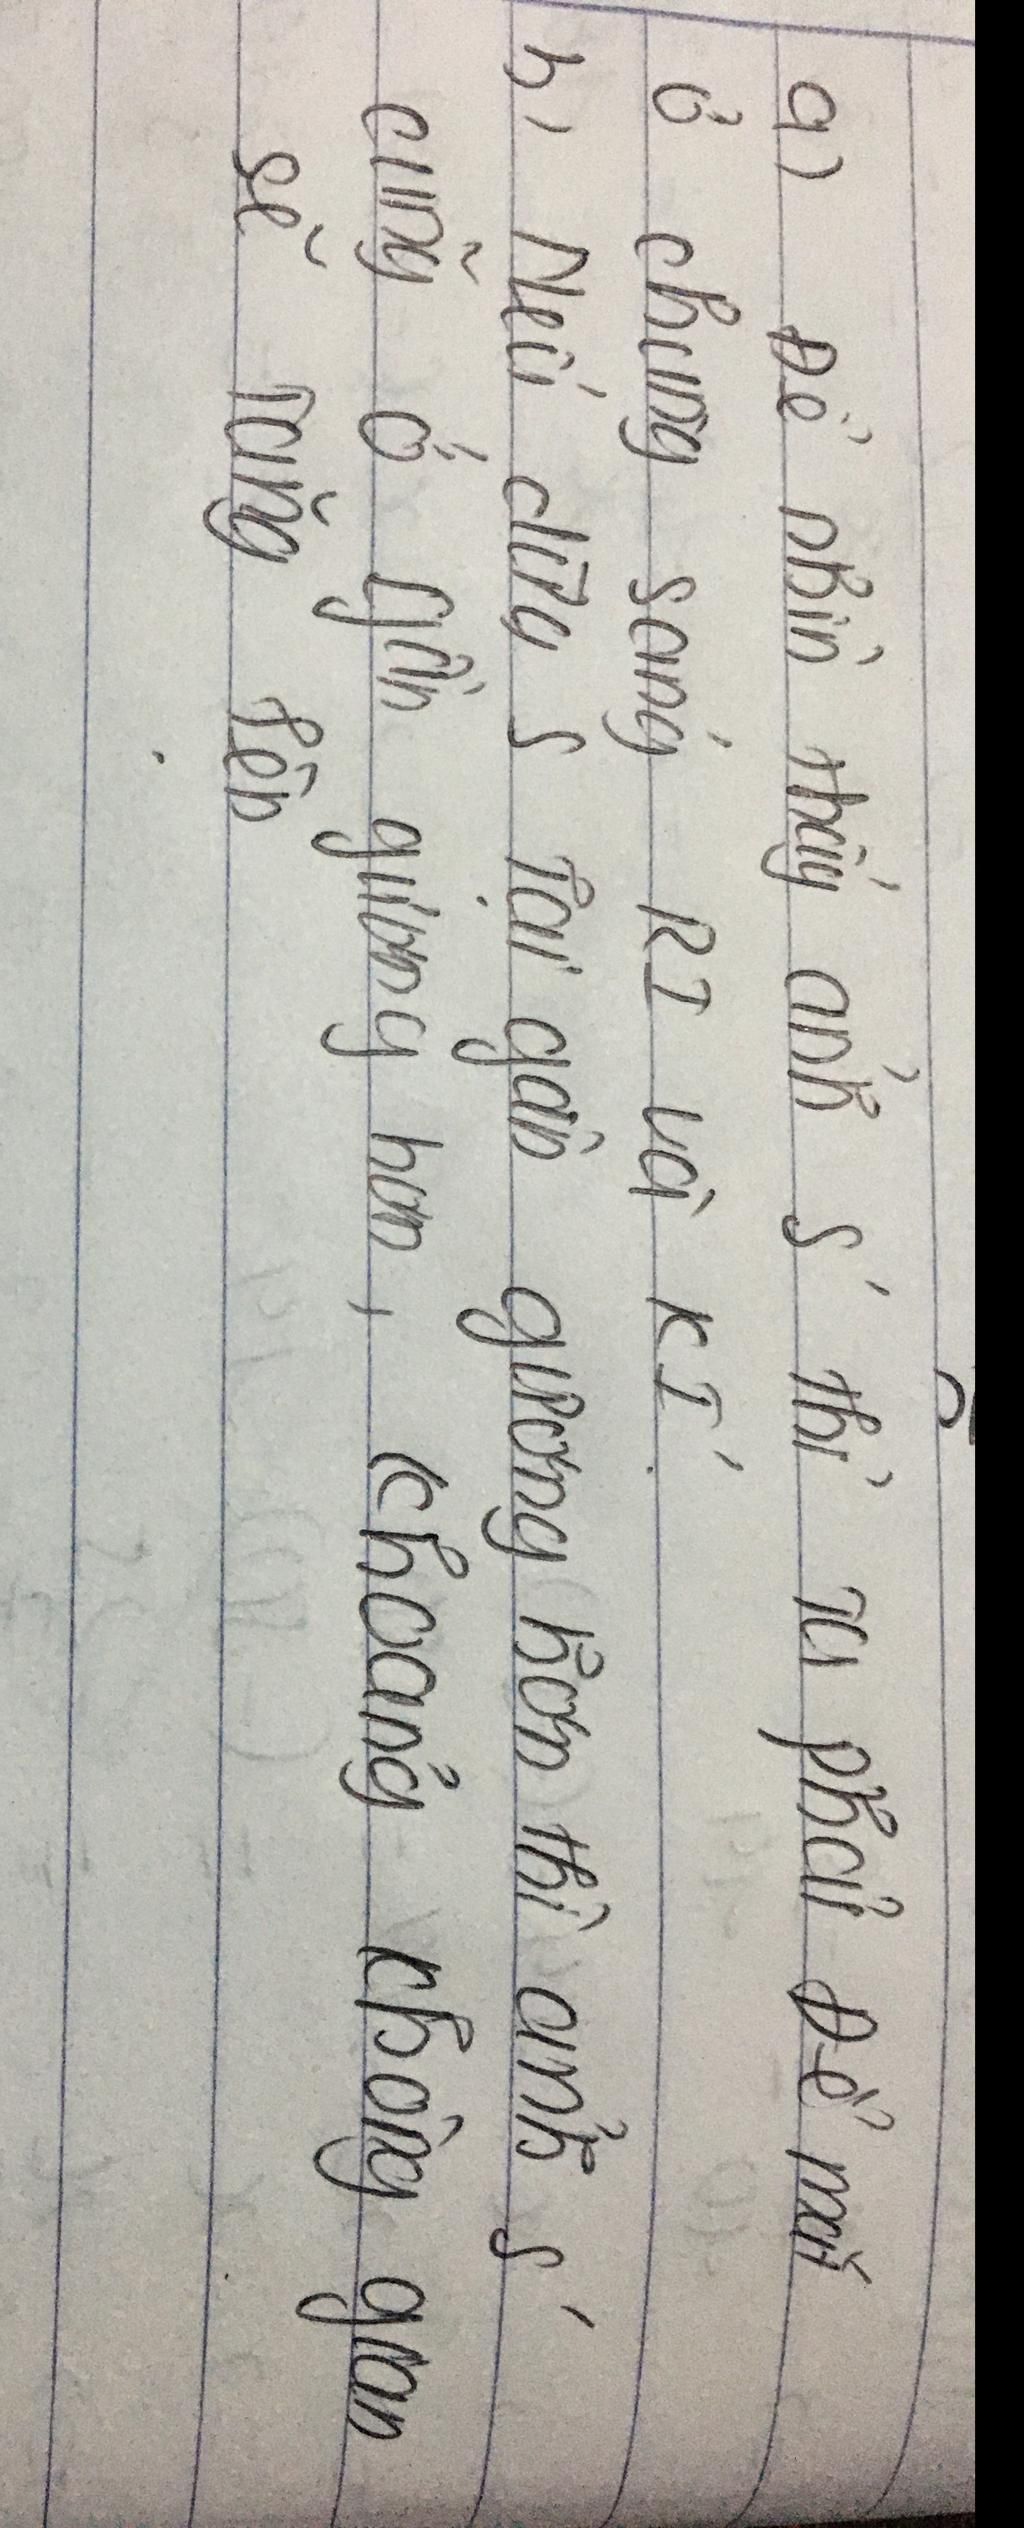 a) Để nhìn thấy ảnh S' thì ta phải để mắt
ở chùng sáng RI và KI'.
b, Nếu đưa S lại gần gương hơn thì ảnh S'
cũng ở gần gương hơn, khoảng không gian
sẽ tăng lên